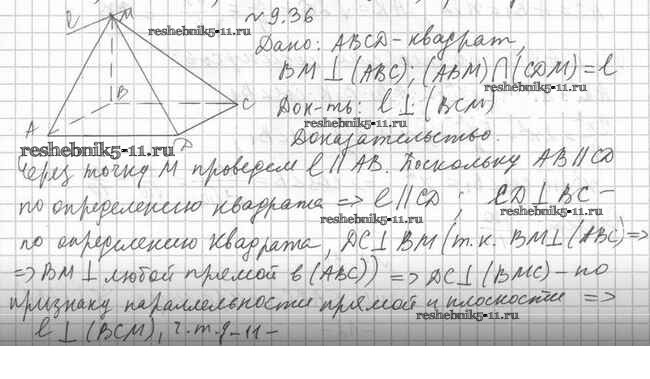 № 9.36
M
l
reshebnik5-11.ru
Дано: ABCD – квадрат,
BM ⊥ (ABC); (ABM) ∩ (CDM) = l
reshebnik5-11.ru
B
C
Док-ть: l ⊥ (BCM)
reshebnik5-11.ru
A
D
Доказательство.
reshebnik5-11.ru
Через точку M проведем l ∥ AB. Поскольку AB ∥ CD
reshebnik5-11.ru
по определению квадрата => l ∥ CD; CD ⊥ BC –
reshebnik5-11.ru
reshebnik5-11.ru
по определению квадрата, DC ⊥ BM (т.к. BM ⊥ (ABC) =>
=> BM ⊥ любой прямой в (ABC)) => DC ⊥ (BMC) – по
reshebnik5-11.ru
признаку параллельности прямой и плоскости =>
l ⊥ (BCM), ч.т.д –11–
reshebnik5-11.ru